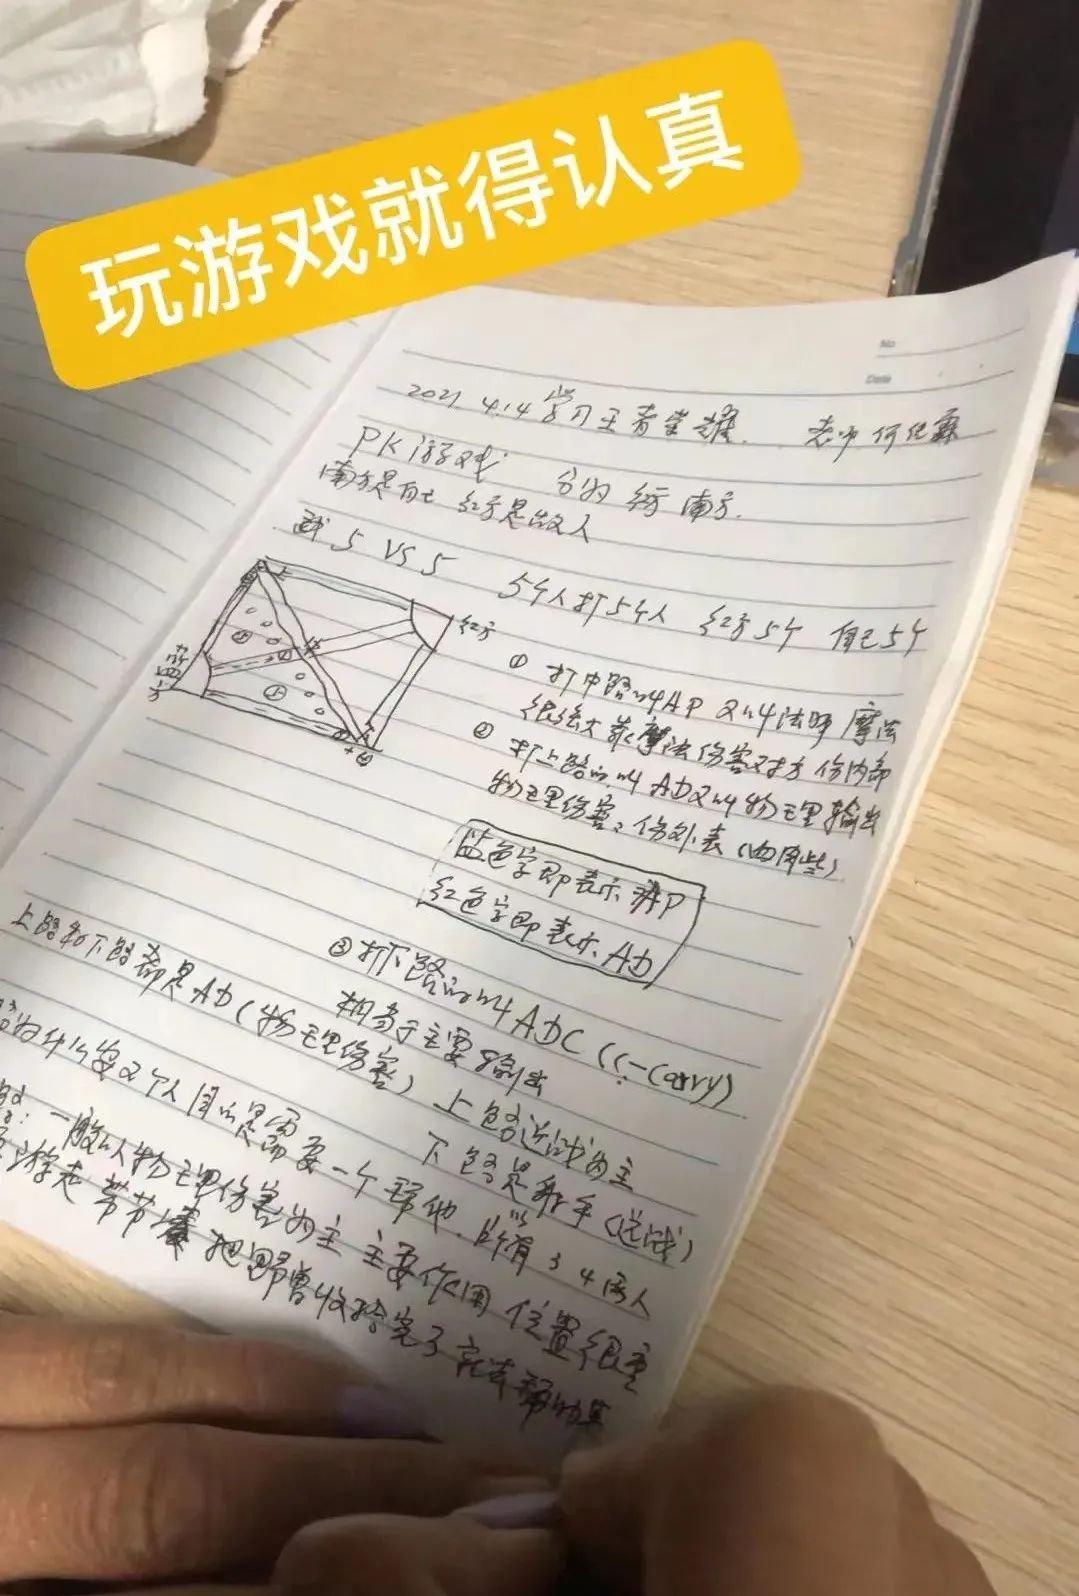 玩游戏就得认真
No
Date
2021 4.14 学习王者荣耀. 老师 何
PK游戏 分为 红方 南方.
南方是自己 红方是敌人
5 VS 5 5个人打5个人 红方5个 自己5个
红方
① 打中路叫AP 又叫法师 魔法
很强大 靠魔法伤害对方 伤内部
② 打上路的叫AD又叫物理输出
物理伤害. 伤外表(肉厚些)
蓝色字即表示AP
红色字即表示AD
③打下路的叫ADC (C-Carry)
相当于主要输出
上路和下路都是AD(物理伤害) 上路近战为主
下路是射手(远战)
为什么要2个人 目的是需要一个帮他. 所以有 3 4 两人
: 一般以物理伤害为主 主要作用 位置很重
游走 带节奏 把野兽收拾完了就去帮助其